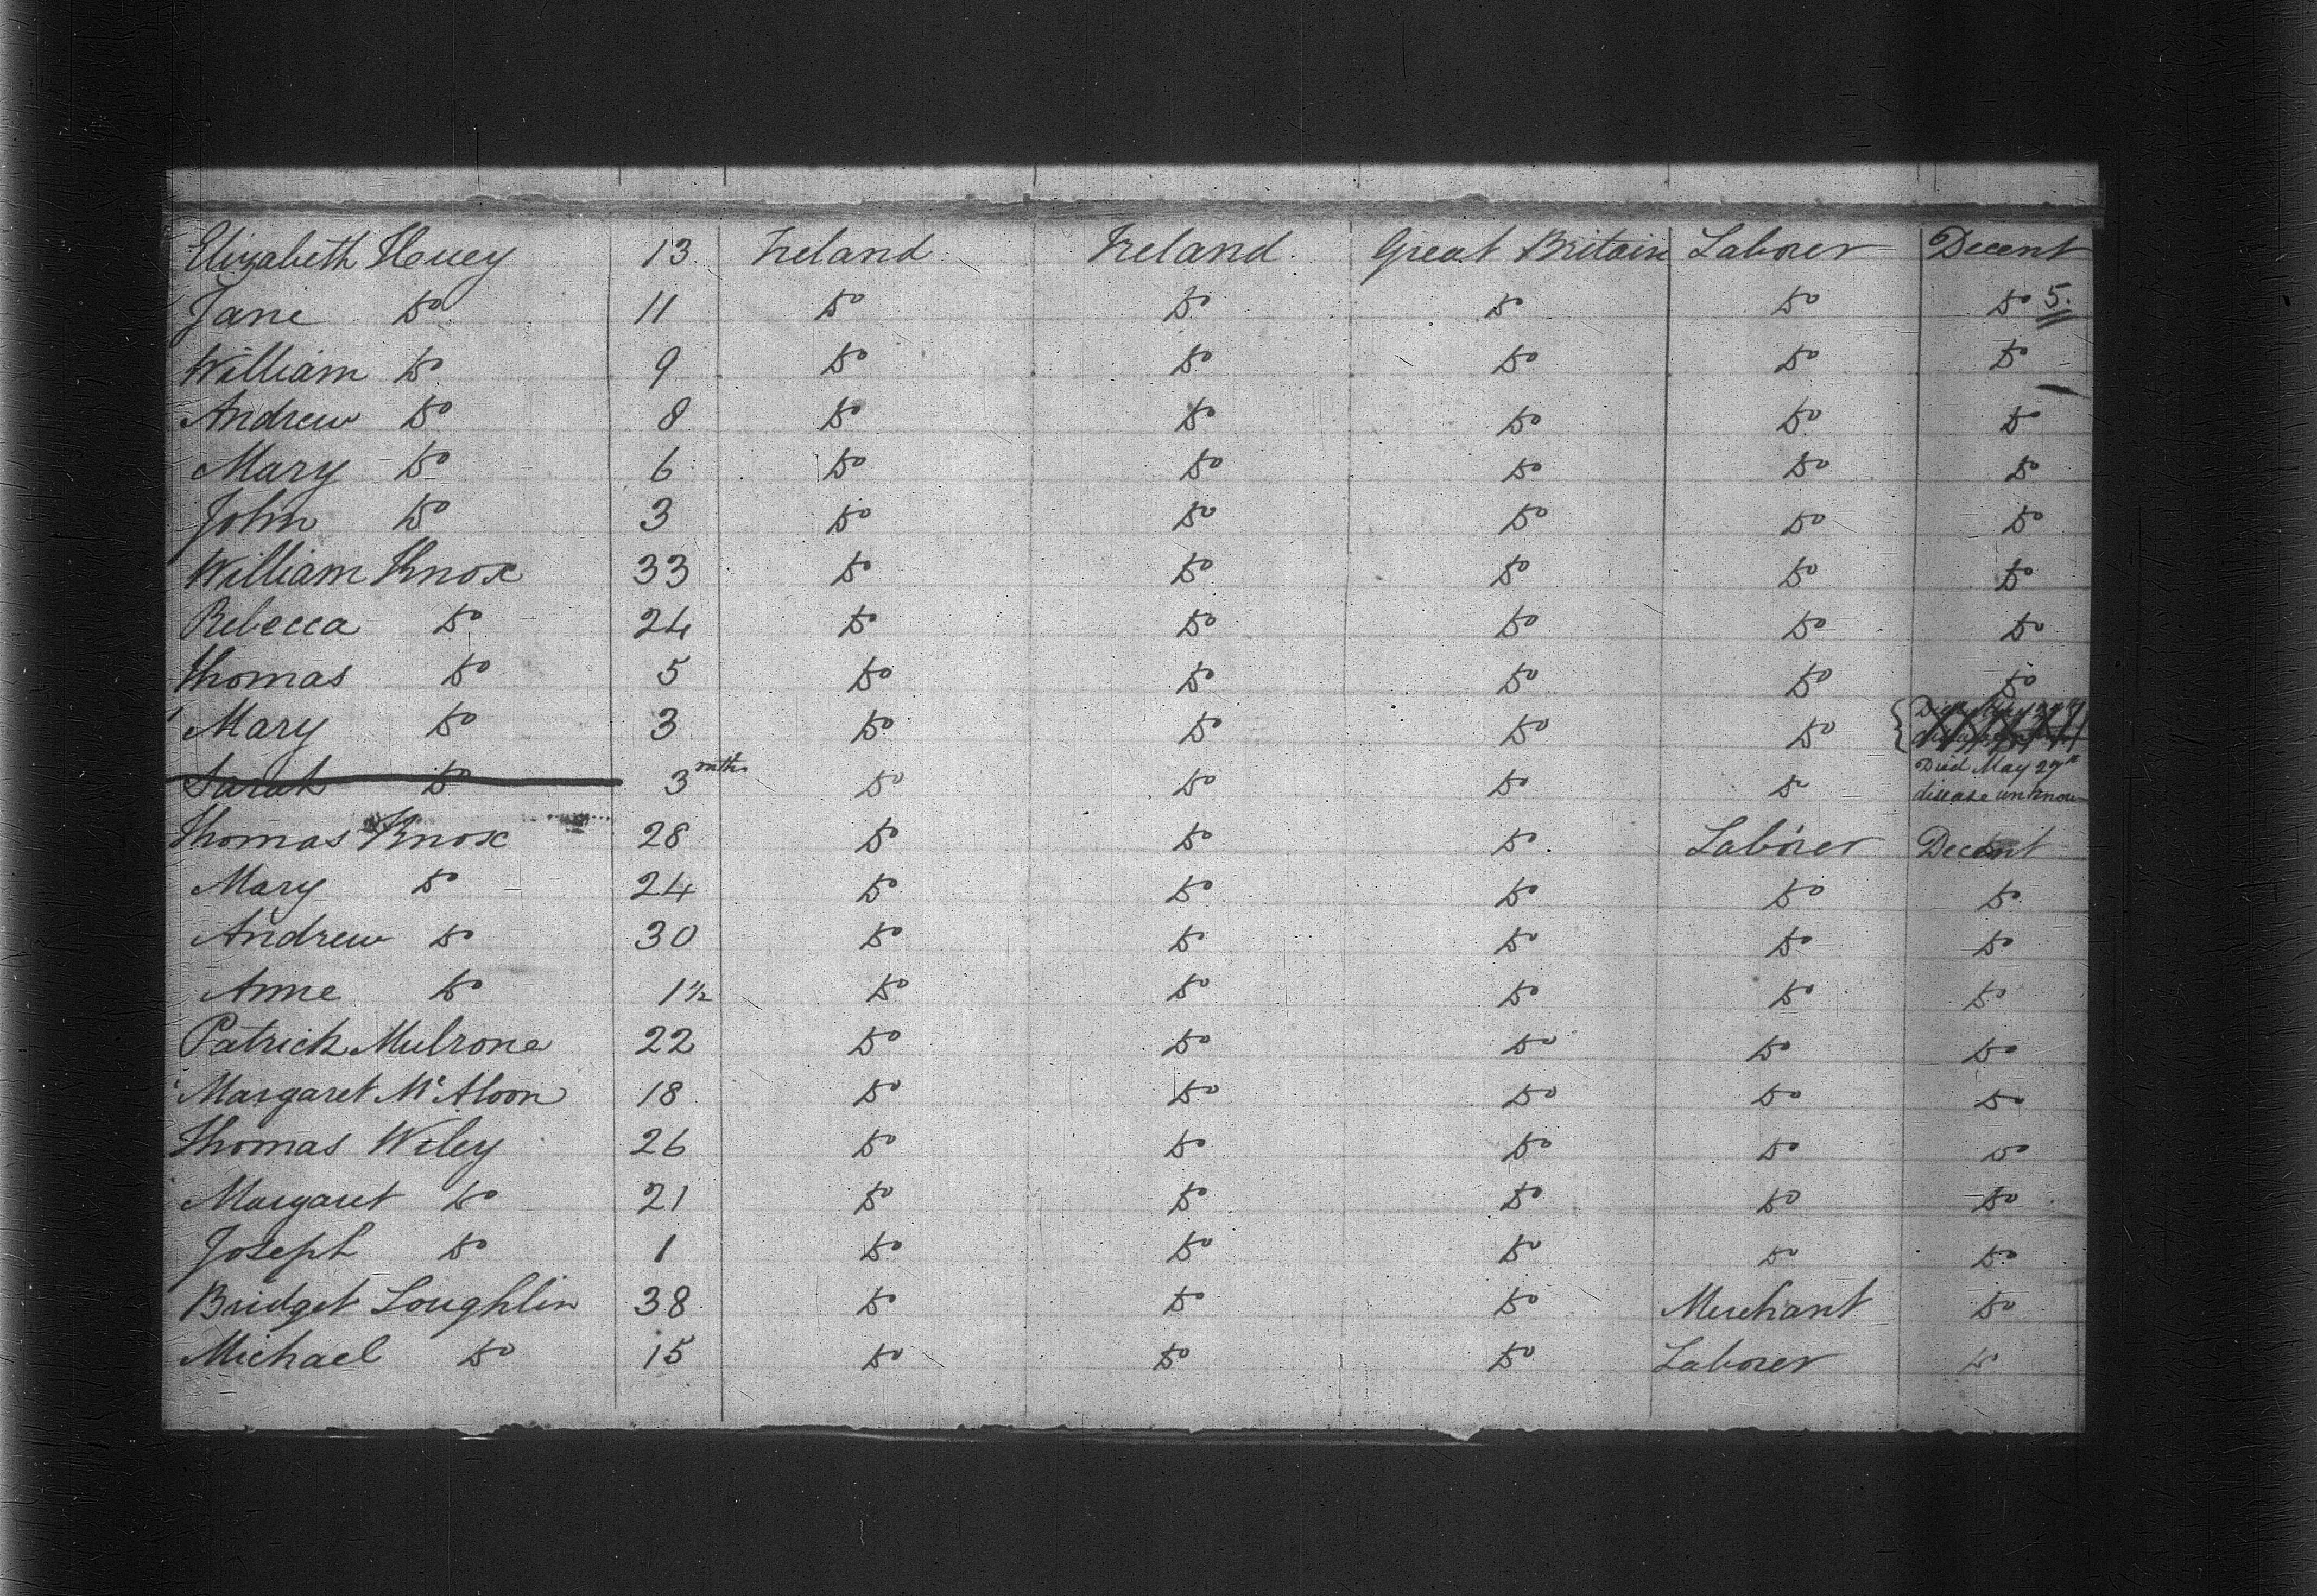 Elizabeth Huey 13 Ireland Ireland Great Britain Laborer Decent
Jane Do 11 Do Do Do Do Do 5.
William Do 9 Do Do Do Do Do
Andrew Do 8 Do Do Do Do Do
Mary Do 6 Do Do Do Do Do
John Do 3 Do Do Do Do Do
William Knox 33 Do Do Do Do Do
Rebecca Do 24 Do Do Do Do Do
Thomas Do 5 Do Do Do Do Do
Mary Do 3 Do Do Do Do
Sarah Do 3 mths Do Do Do Do Died May 27th
disease unknow
Thomas Knox 28 Do Do Do Laborer Decent
Mary Do 24 Do Do Do Do Do
Andrew Do 30 Do Do Do Do Do
Anne Do 1½ Do Do Do Do Do
Patrick Mulrone 22 Do Do Do Do Do
Margaret Mc Aloon 18 Do Do Do Do Do
Thomas Wiley 26 Do Do Do Do Do
Margaret Do 21 Do Do Do Do Do
Joseph Do 1 Do Do Do Do Do
Bridget Loughlin 38 Do Do Do Merchant Do
Michael Do 15 Do Do Do Laborer Do